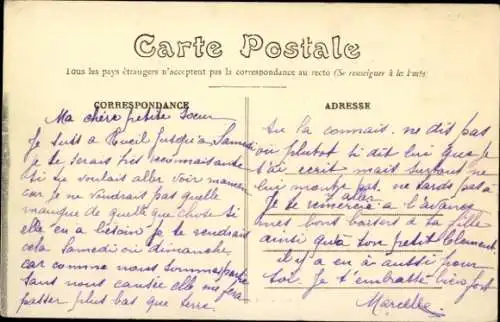 Carte Postale
Tous les pays étrangers n'acceptent pas la correspondance au recto (Se renseigner à la Poste)
CORRESPONDANCE
Ma chère petite Soeur
Je suis a Rueil jusqu'a Samedi
je te serais très reconnaissante
si tu voulais aller voir maman
car je ne voudrais pas quelle
manque de quelque chose si
elle en a besoin je te rendrais
cela Samedi ou dimanche,
car comme nous sommes
sans nous causée elle me
passer plus bas que terre.
ADRESSE
tu la connais. ne dit pas
ou plutot si dit lui que je
t'ai ecrit mais surtout ne
lui montre pas, ne tarde pas a
aller
Je te remercie a l'avance
mes bons baisers a ta fille
ainsi qu'a ton petit Clement
il y a en a aussi pour
toi. Je t'embrasse bien fort
Marcelle